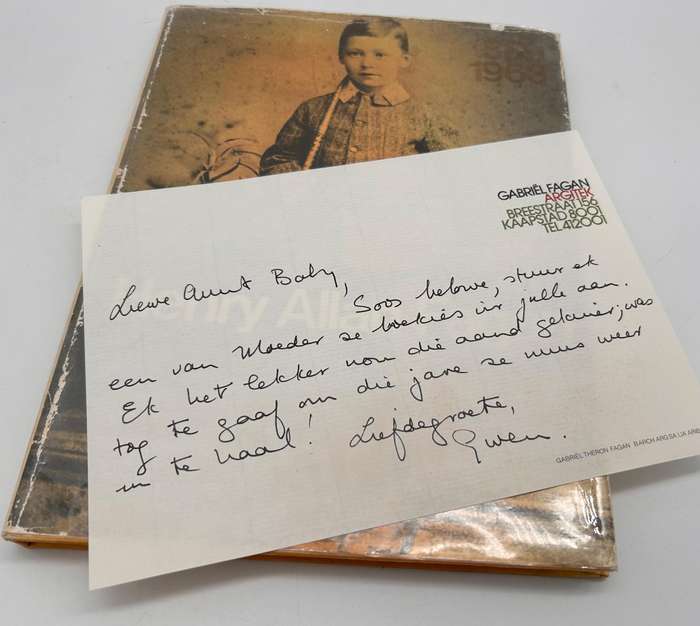 1963
GABRIËL FAGAN
ARGITEK
BREESTRAAT 156
KAAPSTAD 8001
TEL 412001
Liewe Aunt Baby,
Henry Alla
Soos belowe, stuur ek
een van Moeder se boekies vir julle aan.
Ek het lekker nou die aand gekuier; was
tog te gaaf om die jare se nuus weer
in te haal! Liefdegroete,
Gwen.
GABRIËL THERON FAGAN B ARCH ARG SA LIA ARIB